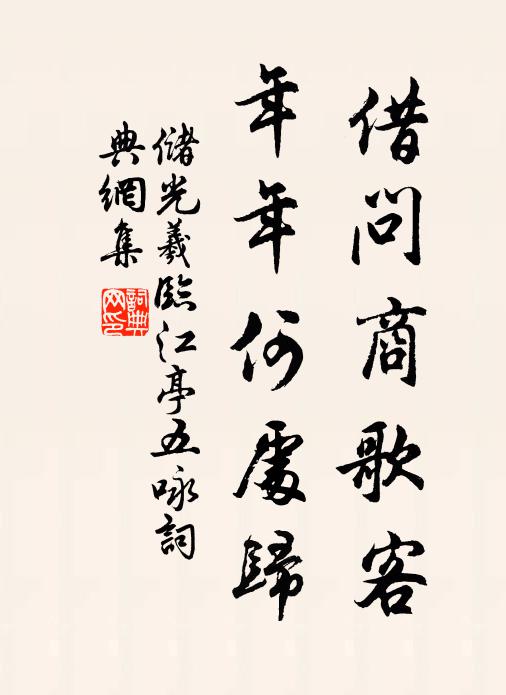 借問商歌客
年年何處歸
儲光羲臨江亭五咏詞
典網集
詞典
网印